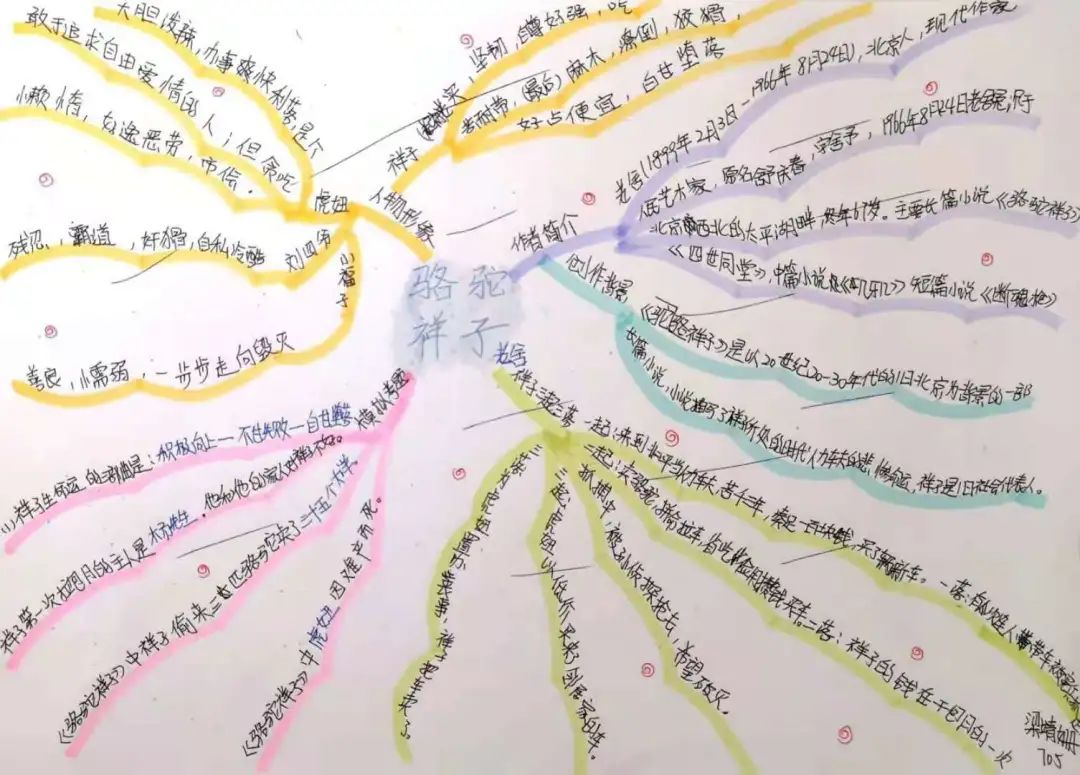 骆驼
祥子
老舍
人物形象
祥子
坚韧，自尊好强，吃
苦耐劳，(最后)麻木，潦倒，狡猾，
好占便宜，自甘堕落
虎妞
大胆泼辣，办事爽快利落，是个
敢于追求自由爱情的人；但贪吃
小懒惰，好逸恶劳，市侩。
刘四爷
残忍，霸道，奸猾，自私冷酷
小福子
善良，小需弱，一步步走向毁灭
作者简介
老舍(1899年2月3日－1966年8月24日)，北京人，现代作家
人民艺术家，原名舒庆春，字舍予，1966年8月24日老舍
北京西北的太平湖畔，终年67岁。主要长篇小说《骆驼祥子》
《四世同堂》，中篇小说《月牙儿》短篇小说《断魂枪》
创作背景
《骆驼祥子》是以20世纪20-30年代的旧北京为背景的一部
长篇小说，小说描写了祥子所处的时代人力车夫的悲惨命运，祥子是旧社会代表人。
祥子三起三落
一起：来到北平当人力车夫，苦干三年，凑足一百块钱，买了辆新车。一落：
二起：卖骆驼，拼命拉车，省吃俭用攒钱买车。二落：祥子的钱在干包月的一次
抓捕中，被孙侦探抢去，希望破灭。
三起：虎妞以低价买
模拟考题
(1)祥子生命运的三部曲是：积极向上－不甘失败－自甘堕落
祥子第一次拉包月的主人是杨先生，他和他的家人对祥子不好。
《骆驼祥子》中祥子偷来三匹骆驼卖了三十五个大洋
《骆驼祥子》中虎妞因难产而死。
705